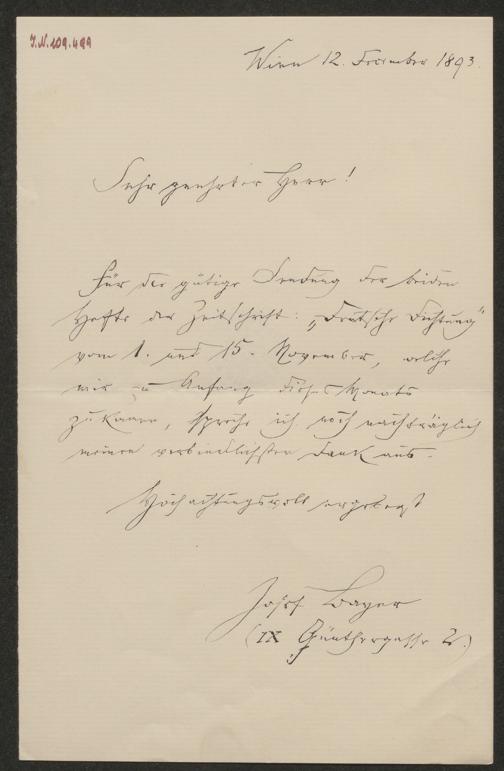 J.N.109.499
Wien 12. Dezember 1893.
Sehr geehrter Herr!
Für die gütige Sendung der beiden
Hefte der Zeitschrift: „Deutsche Dichtung"
vom 1. und 15. November, welche
mir zu Anfang dieses Monats
zukamen, spreche ich noch nachträglich
meinen verbindlichsten Dank aus.
Hochachtungsvoll ergebenst
Josef Bayer
(IX Günthergasse 2.)